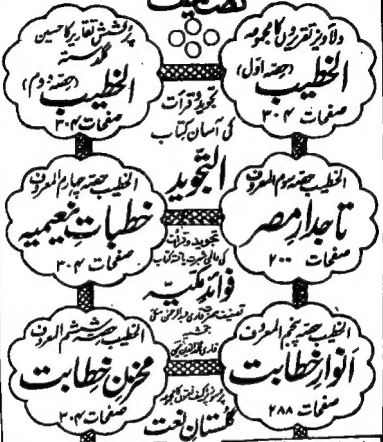 تصانیف
دلآویز تقریروں کا مجموعہ
الخطیب
(حصہ اول)
صفحات ۳۰۴
پرکشش تقاریر کا حسین
گلدستہ
الخطیب
(حصہ دوم)
صفحات ۳۰۴
تجوید و قرأت
کی آسان کتاب
التجوید
الخطیب حصہ سوم المعروف
تاجدارِ مصر
صفحات ۲۰۰
الخطیب حصہ چہارم المعروف
خطباتِ نعیمیہ
صفحات ۳۰۴
تجوید و قرأت
کی عالمی شہرت یافتہ کتاب
فوائدِ مکیہ
تصنیف حضرت قاری عبدالرحمٰن مکی
الخطیب حصہ پنجم المعروف
انوارِ خطابت
صفحات ۲۸۸
الخطیب حصہ ششم المعروف
مخزنِ خطابت
صفحات ۳۰۴
گلستانِ نعت